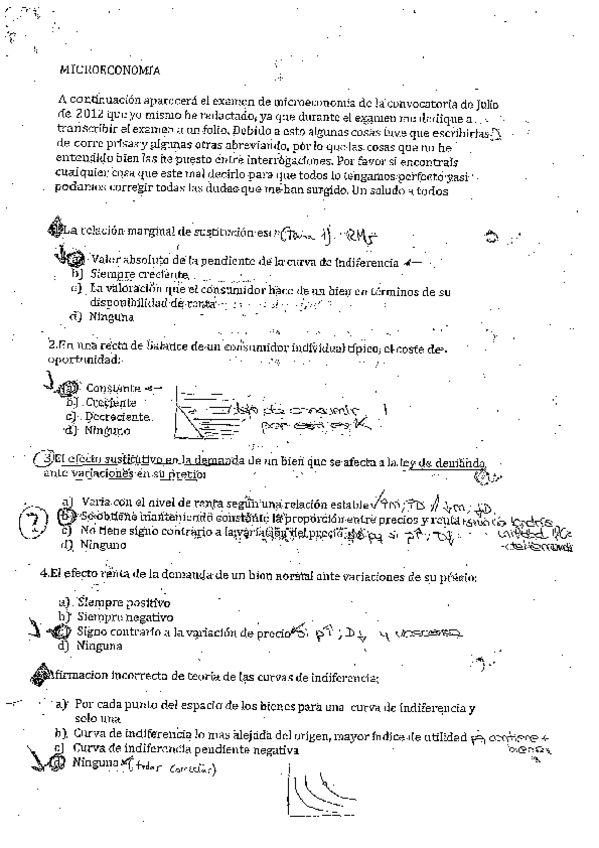 MICROECONOMIA
A continuación aparecerá el examen de microeconomía de la convocatoria de Julio
de 2012 que yo mismo he redactado, ya que durante el examen me dedique a
transcribir el examen a un folio. Debido a esto algunas cosas tuve que escribirlas
de corre prisas y algunas otras abreviando, por lo que las cosas que no he
entendido bien las he puesto entre interrogaciones. Por favor si encontrais
cualquier cosa que este mal decirlo para que todos lo tengamos perfecto y asi
podamos corregir todas las dudas que me han surgido. Un saludo a todos
La relación marginal de sustitución es: (Tema 1)
a) Valor absoluto de la pendiente de la curva de indiferencia
b) Siempre creciente
c) La valoración que el consumidor hace de un bien en términos de su
disponibilidad de renta
d) Ninguna
2.En una recta de balance de un consumidor individual típico, el coste de
oportunidad:
a) Constante
b) Creciente
c) Decreciente
d) Ninguno
3.El efecto sustitutivo en la demanda de un bien que se afecta a la ley de demanda
ante variaciones en su precio:
a) Varia con el nivel de renta según una relación estable
b) Se obtiene manteniendo constante la proporción entre precios y renta
c) No tiene signo contrario a la variación del precio
d) Ninguno
?
4.El efecto renta de la demanda de un bien normal ante variaciones de su precio:
a) Siempre positivo
b) Siempre negativo
c) Signo contrario a la variación de precio
d) Ninguna
Afirmacion incorrecto de teoría de las curvas de indiferencia:
a) Por cada punto del espacio de los bienes para una curva de indiferencia y
solo una
b) Curva de indiferencia lo mas alejada del origen, mayor índice de utilidad
c) Curva de indiferencia pendiente negativa
d) Ninguna (todas correctas)